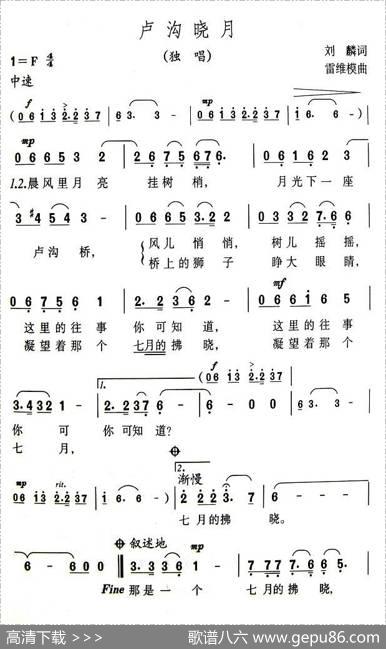 卢沟晓月
(独唱)
1=F 4/4
中速
刘麟词
雷维模曲
f
(0 6 1 3 2.2 3 7 | 6 3. 3 - | 0 6 1 3 2.2 3 7 | 1 6. 6 -) |
mp
mp
0 6 6 5 3 2 | 2 6 7 5 6 7 6. | 0 6 1 6 2 3 |
1.2.晨风里月亮 挂树梢, 月光下一座
3 #4 5 4 3 - | 0 6 6 5 3. 2 2 | 0 3 3 2 7. 6 6 |
卢沟桥, 风儿悄悄, 树儿摇摇,
桥上的狮子 睁大眼睛,
mf
0 6 7 5 6 1 | 2. 2 3 6 - | 0 6 6 1 6 5 |
这里的往事 你可知道, 这里的往事
凝望着那个 七月的拂晓, 凝望着那个
1.
f
(0 6 1 3 2.2 3 7
3. 4 3 2 1 - | 2. 2 3 7 6 - | 6 - 0 0 | 6 3. 3 - |
你可 你可知道?
七月,
渐慢
2.
mp
rit.
0 6 1 3 2.2 3 7 | 1 6. 6 -) | 2 2 2 3. 7 | 6 - - - |
七月的拂晓。
叙述地
mp
6 - 6 0 0 | 3. 3 3 6 1 - | 7 7 7 7. 6 6 - |
Fine 那是一个 七月的拂晓,
高清下载 >>>
歌谱八六 www.gepu86.com